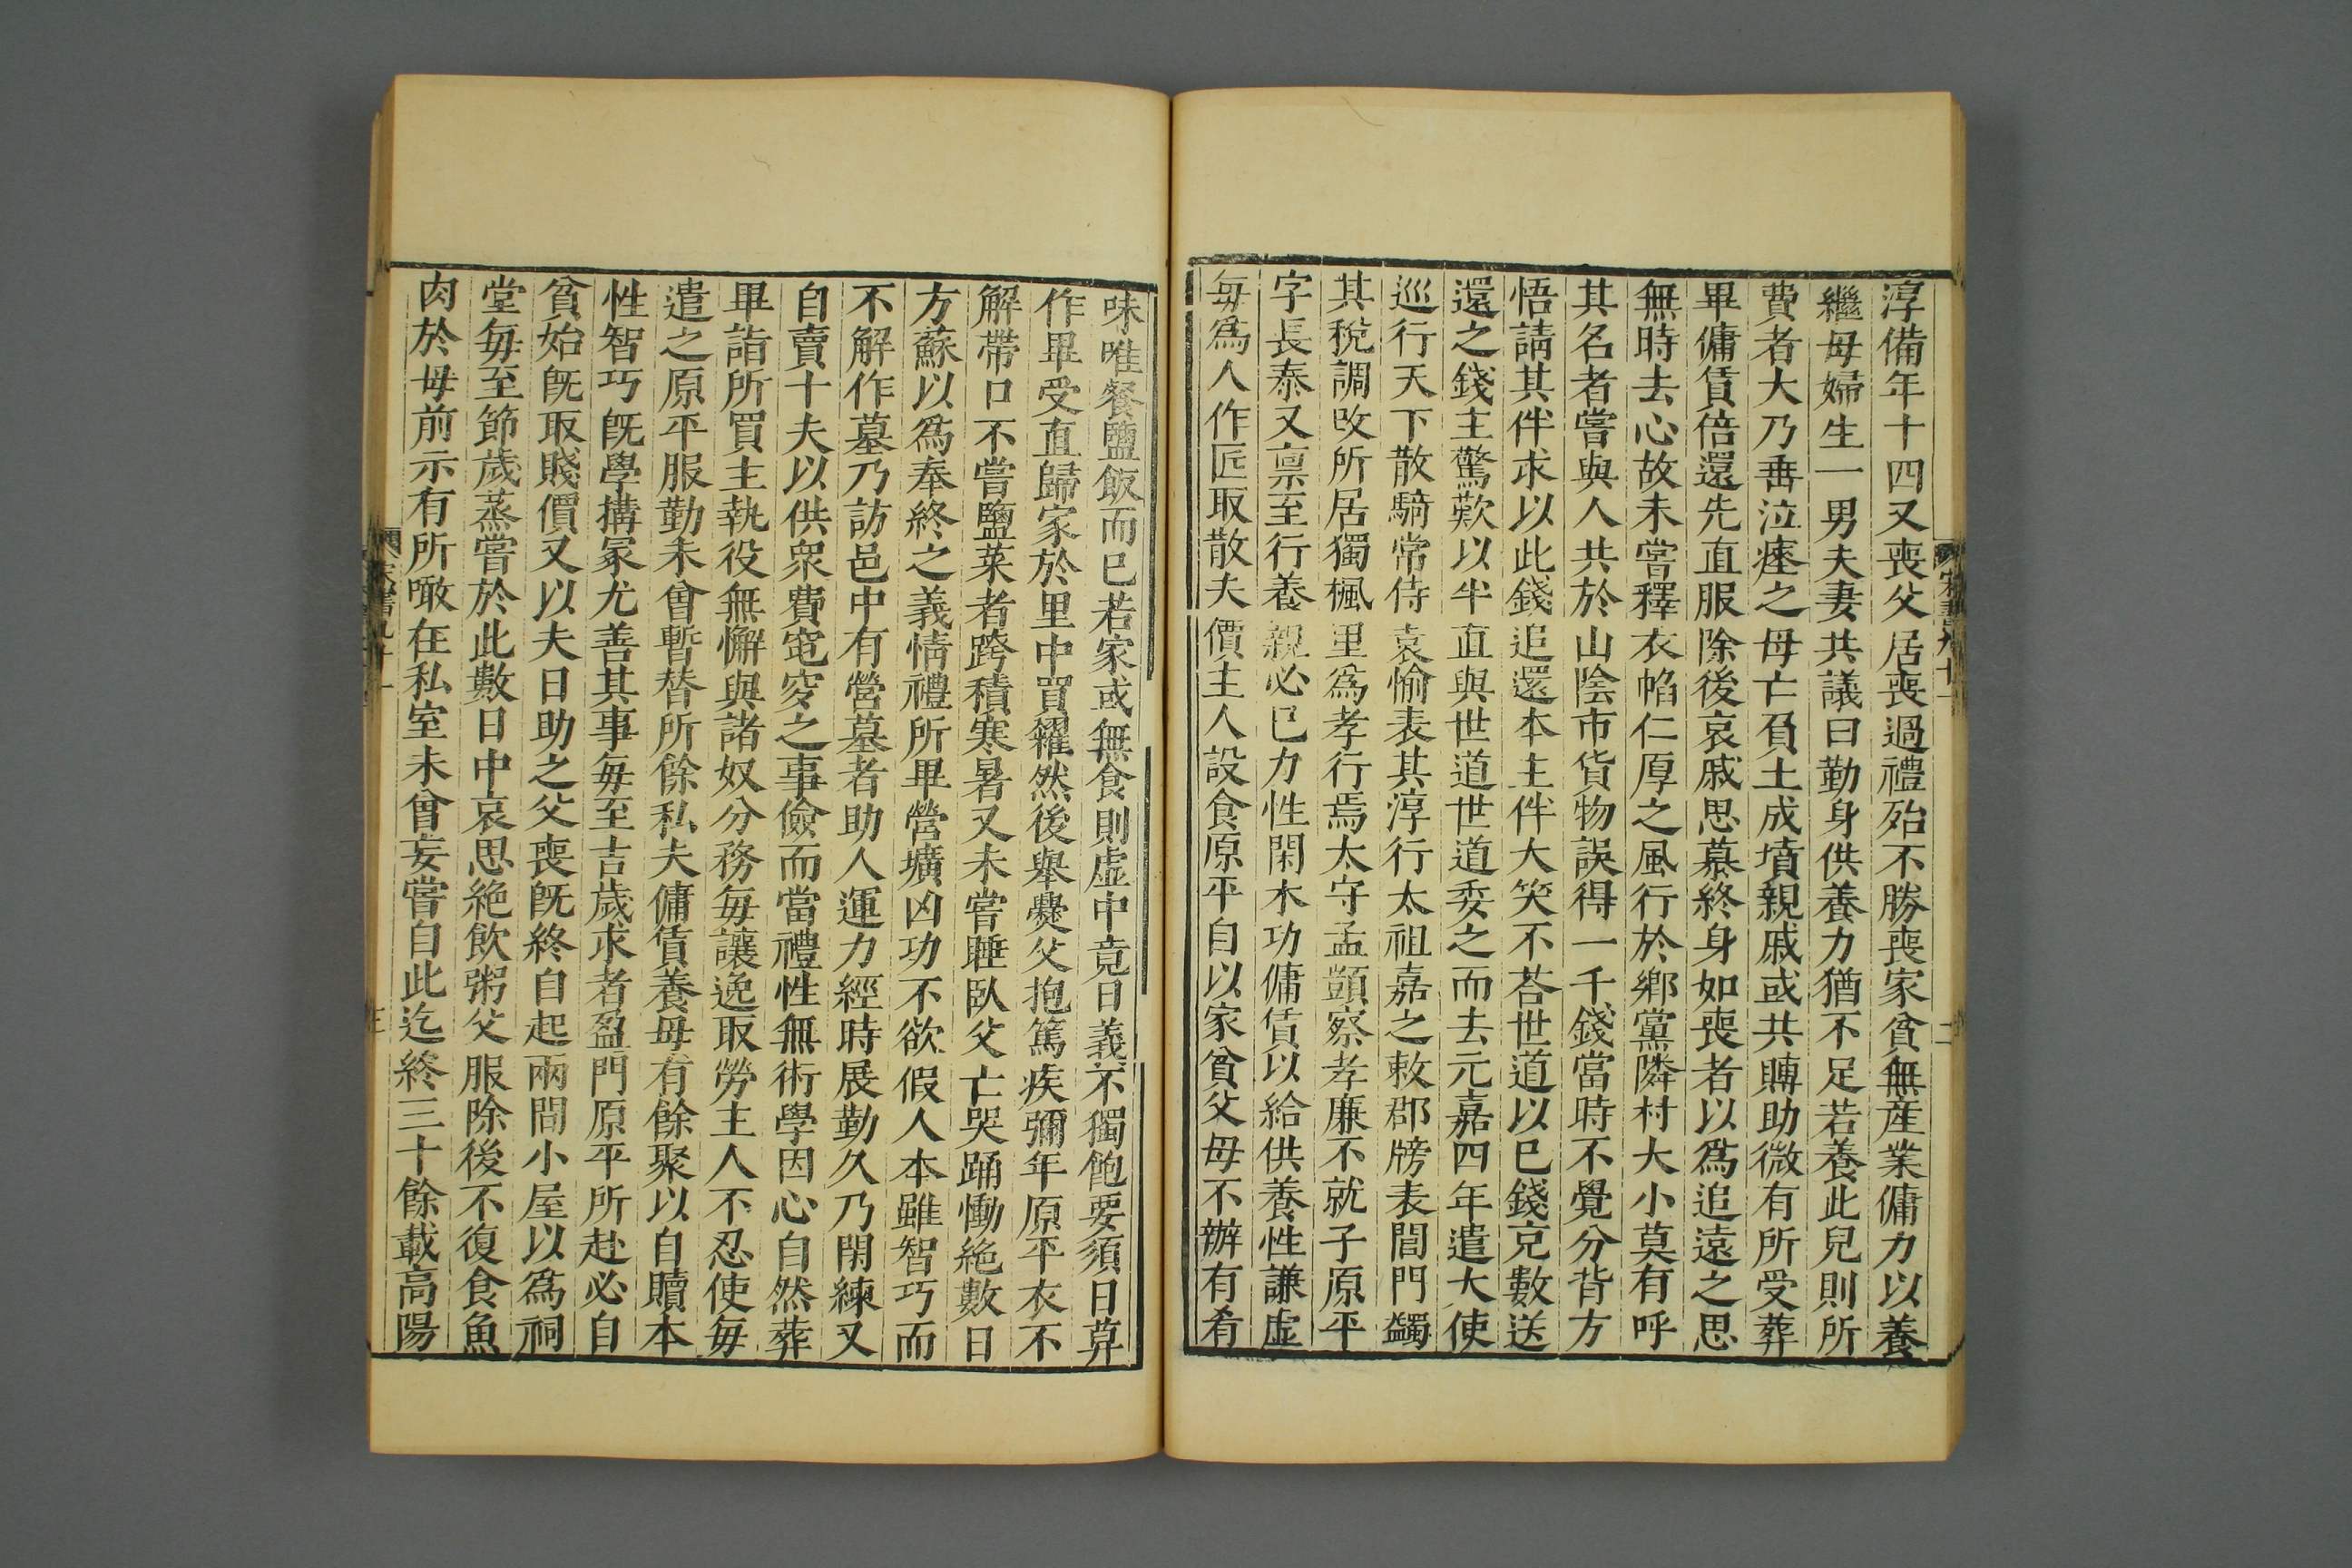 淳備年十四又喪父居喪過禮殆不勝喪家貧無產業傭力以養
繼母婦生一男夫妻共議曰勤身供養力猶不足若養此兒則所
費者大乃垂泣瘞之母亡負土成墳親戚或共賻助微有所受葬
畢傭賃倍還先直服除後哀戚思慕終身如喪者以爲追遠之思
無時去心故未嘗釋衣幍仁厚之風行於鄉黨隣村大小莫有呼
其名者嘗與人共於山陰市貨物誤得一千錢當時不覺分背方
悟請其伴求以此錢追還本主伴大笑不荅世道以已錢充數送
還之錢主驚歎以半直與世道世道委之而去元嘉四年遣大使
巡行天下散騎常侍袁愉表其淳行太祖嘉之敕郡牓表閭門蠲
其稅調改所居獨楓里爲孝行焉太守孟顗察孝廉不就子原平
字長泰又稟至行養親必已力性閑木功傭賃以給供養性謙虛
每爲人作匠取散夫價主人設食原平自以家貧父母不辦有肴
味唯餐鹽飯而已若家或無食則虛中竟日義不獨飽要須日暮
作畢受直歸家於里中買糴然後舉爨父抱篤疾彌年原平衣不
解帶口不嘗鹽菜者跨積寒暑又未嘗睡臥父亡哭踊慟絶數日
方蘇以爲奉終之義情禮所畢營壙凶功不欲假人本雖智巧而
不解作墓乃訪邑中有營墓者助人運力經時展勤久乃閑練又
自賣十夫以供衆費窀穸之事儉而當禮性無術學因心自然葬
畢詣所買主執役無懈與諸奴分務每讓逸取勞主人不忍使每
遣之原平服勤未曾暫替所餘私夫傭賃養母有餘聚以自贖本
性智巧旣學搆冢尤善其事每至吉歲求者盈門原平所赴必自
貧始旣取賤價又以夫日助之父喪旣終自起兩間小屋以爲祠
堂每至節歲蒸嘗於此數日中哀思絶飲粥父服除後不復食魚
肉於母前示有所噉在私室未曾妄嘗自此迄終三十餘載高陽